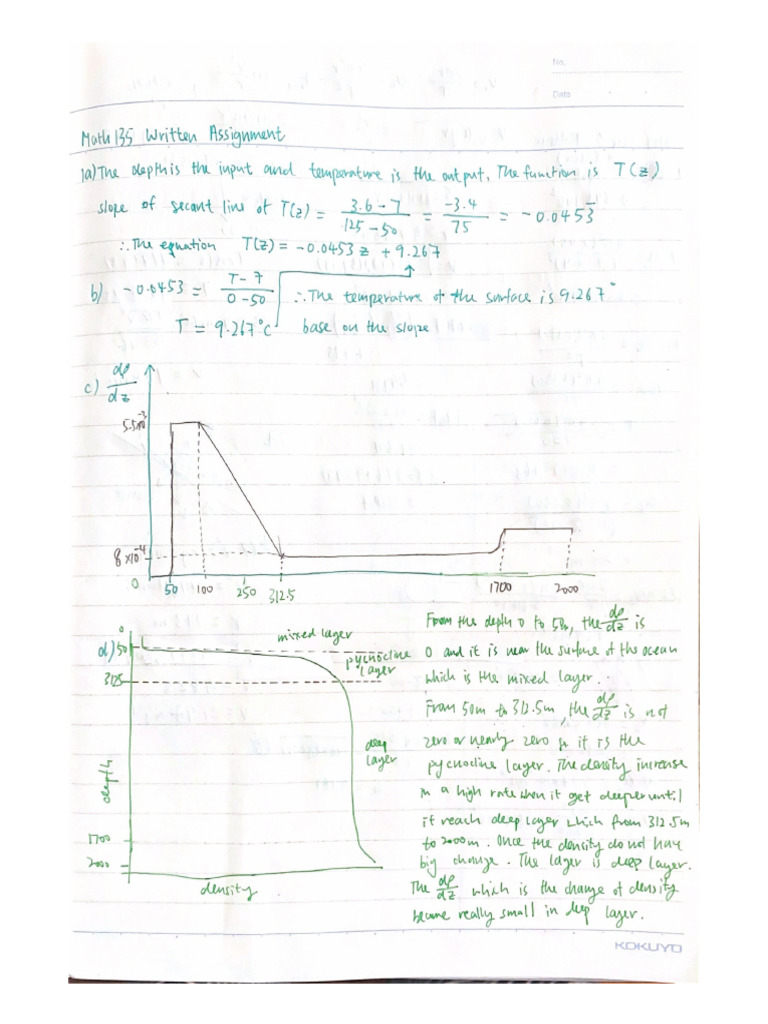 No.
Date
Math 135 Written Assignment
1a) The depth is the input and temperature is the output. The function is T(z)
slope of secant line of T(z) = (3.6 - 7)/(125 - 50) = (-3.4)/75 = -0.0453̄
∴ The equation T(z) = -0.0453 z + 9.267
b) -0.0453 = (T - 7)/(0 - 50) ∴ The temperature of the surface is 9.267°
T = 9.267°C base on the slope
c) dρ/dz
5.5x10⁻³
8x10⁻⁴
0 50 100 250 312.5 1700 2000
d) 0
50
mixed layer
pycnocline layer
3125
deep layer
depth
1700
2000
density
From the depth 0 to 50m, the dρ/dz is
0 and it is near the surface of the ocean
which is the mixed layer.
From 50m to 312.5m, the dρ/dz is not
zero or nearly zero so it is the
pycnocline layer. The density increase
in a high rate when it get deeper until
it reach deep layer which from 312.5m
to 2000m. Once the density do not have
big change. The layer is deep layer.
The dρ/dz which is the change of density
became really small in deep layer.
KOKUYO